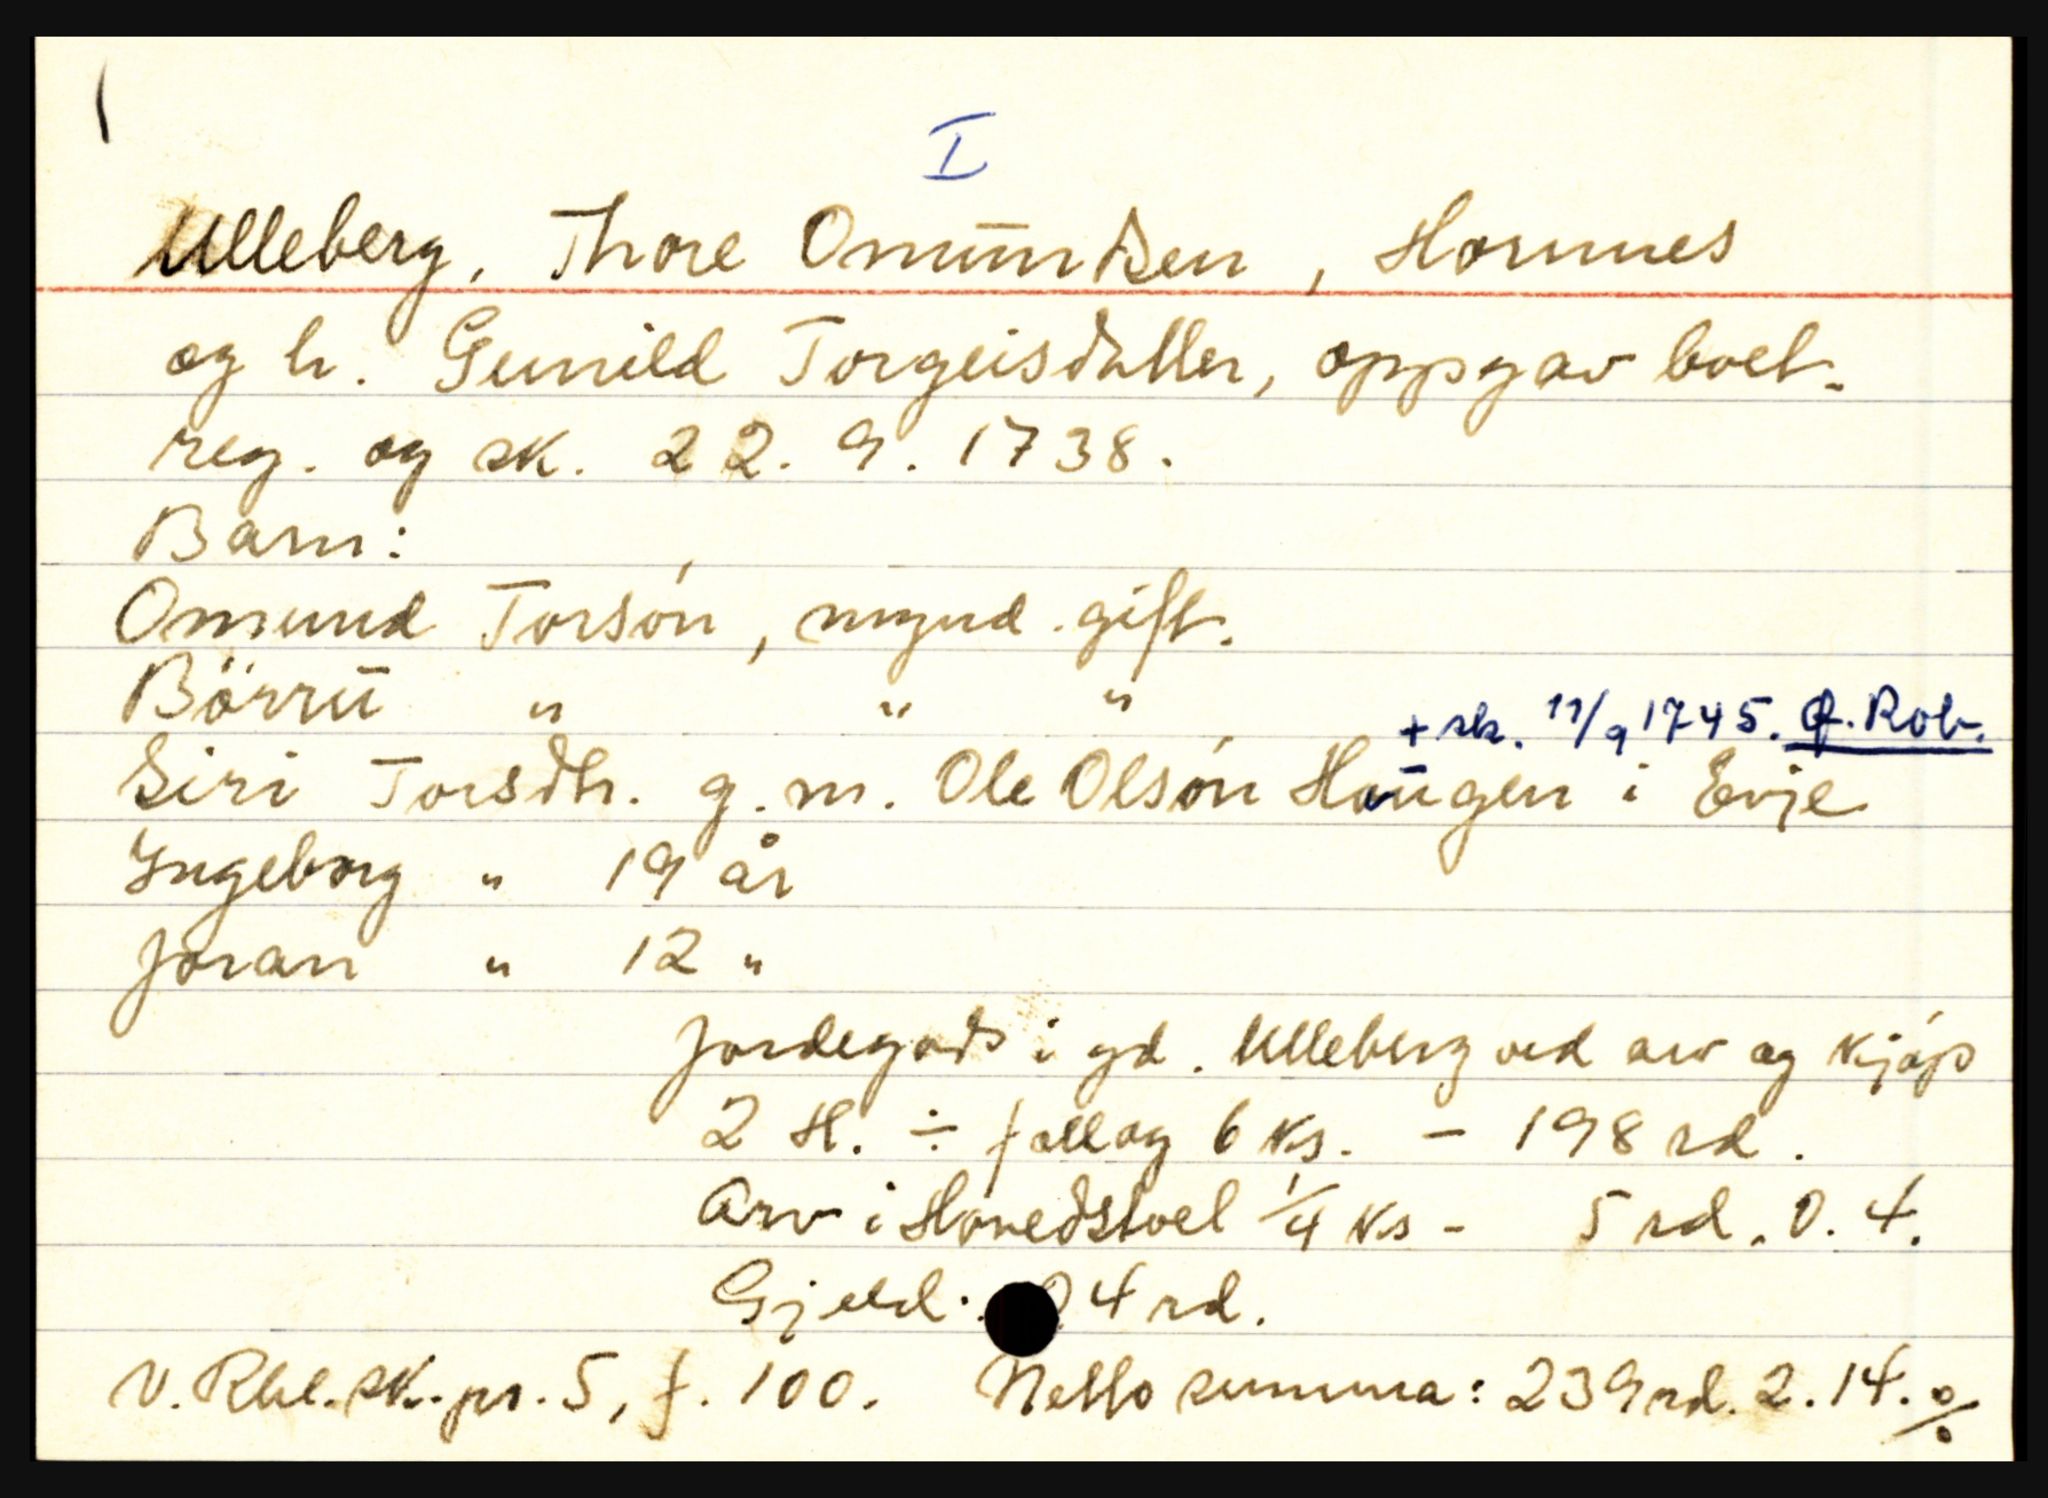 I
Ulleberg, Thore Omŭndsen, Hornnes
og h. Gunild Torgeisdatter, oppgav boet.
reg. og sk. 22. 9. 1738.
Barn:
Omund Torsón, mynd. gift.
Börrŭ " " "
+ sk. 11/9 1745. Q. Rob.
Siri Torsdtr. g. m. Ole Olsón Haŭgen i Evje
Ingeborg " 19 år
Joran " 12 "
Jordegods i gd. Ulleberg ved arv og kjóp
2 H. ÷ fellag 6 ks. - 198 rd.
Arv i Hovedstoel 1/4 ks - 5 rd. 0. 4.
Gjeld: 4 rd.
V. Rbl. sk. pr. 5, f. 100. Netto summa: 239 rd. 2. 14. %